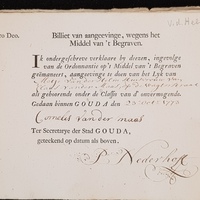 V.d. 
ro Deo.
Billiet van aangeevinge, wegens het
Middel van 't Begraven.
IK ondergeschreve verklaare by deezen, ingevolge
van de Ordonnantie op 't Middel van 't Begraven
geëmaneert, aangeevinge te doen van het Lyk van
als gehoorende onder de Classis van d' onvermogende.
Gedaan binnen GOUDA den
Cornelis van der maas
Ter Secretarye der Stad GOUDA,
geteekend op datum als boven.
P. Nederhof